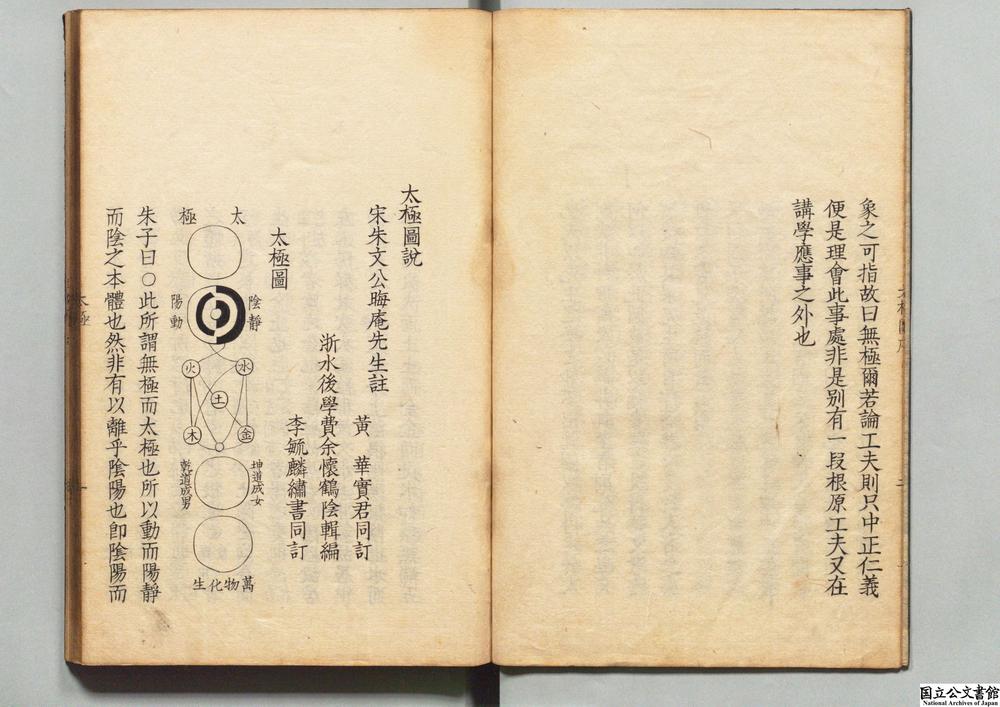 象之可指故曰無極爾若論工夫則只中正仁義
便是理會此事處非是别有一段根原工夫又在
講學應事之外也
太極圖說
宋朱文公晦庵先生註
黃　華實君同訂
浙水後學費余懷鶴陰輯編
李毓麟繡書同訂
太極圖
太極
陰靜
陽動
水
火
土
金
木
坤道成女
乾道成男
萬物化生
朱子曰〇此所謂無極而太極也所以動而陽靜
而陰之本體也然非有以離乎陰陽也卽陰陽而
太極
一
国立公文書館
National Archives of Japan